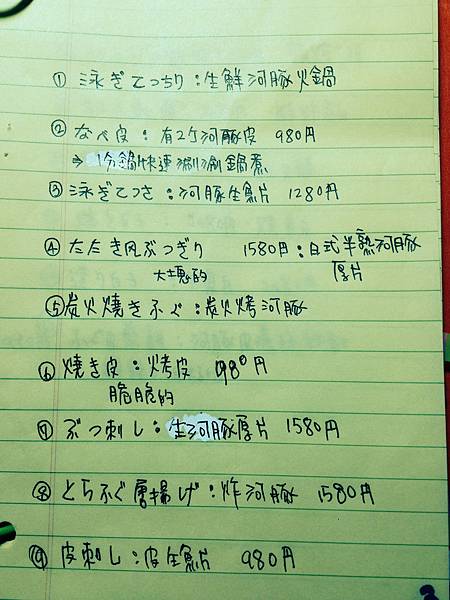 ① 泳ぎてっちり:生鮮河豚火鍋
② なべ皮:有2h河豚皮 980円
⇒ 1分鍋快速涮涮鍋煮
③ 泳ぎてっさ:河豚生魚片 1280円
④ たたき風ぶつぎり 1580円:日式半熟河豚
大塊的 厚片
⑤ 炭火燒きふぐ:炭火烤河豚
⑥ 燒き皮:烤皮 980円
脆脆的
⑦ ぶつ刺し:生河豚厚片 1580円
⑧ とらふぐ唐揚げ:炸河豚 1580円
⑨ 皮刺し:皮生魚片 980円